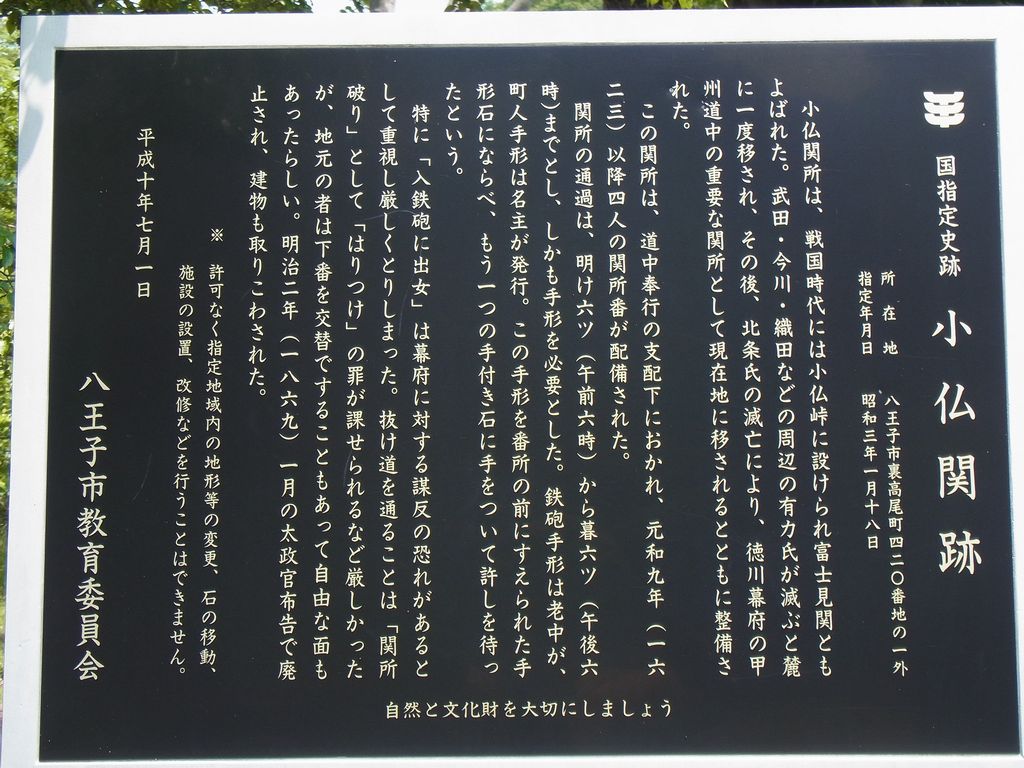 国指定史跡 小仏関跡
所在地 八王子市裏高尾町四二〇番地の一外
指定年月日 昭和三年一月十八日
小仏関所は、戦国時代には小仏峠に設けられ富士見関とも
よばれた。武田・今川・織田などの周辺の有力氏が滅ぶと麓
に一度移され、その後、北条氏の滅亡により、徳川幕府の甲
州道中の重要な関所として現在地に移されるとともに整備さ
れた。
この関所は、道中奉行の支配下におかれ、元和九年（一六
二三）以降四人の関所番が配備された。
関所の通過は、明け六ツ（午前六時）から暮六ツ（午後六
時）までとし、しかも手形を必要とした。鉄砲手形は老中が、
町人手形は名主が発行。この手形を番所の前にすえられた手
形石にならべ、もう一つの手付き石に手をついて許しを待っ
たという。
特に「入鉄砲に出女」は幕府に対する謀反の恐れがあると
して重視し厳しくとりしまった。抜け道を通ることは「関所
破り」として「はりつけ」の罪が課せられるなど厳しかった
が、地元の者は下番を交替ですることもあって自由な面も
あったらしい。明治二年（一八六九）一月の太政官布告で廃
止され、建物も取りこわされた。
※ 許可なく指定地域内の地形等の変更、石の移動、
施設の設置、改修などを行うことはできません。
平成十年七月一日
八王子市教育委員会
自然と文化財を大切にしましょう